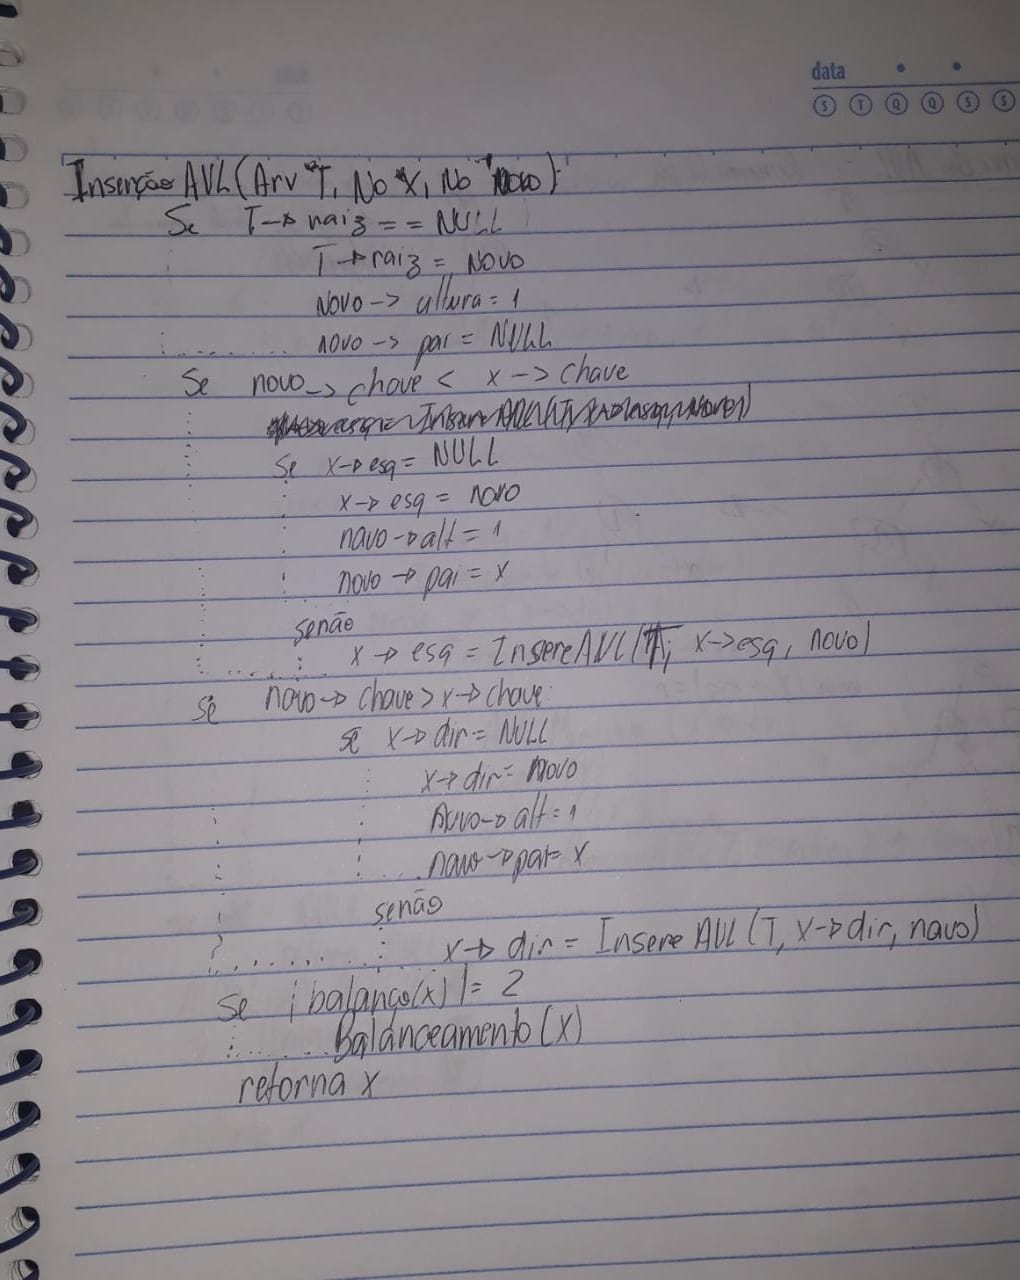 data
S T Q Q S S
Inserção AVL (Arv *T, No *X, No *novo)
Se T-> raiz == NULL
T->raiz = Novo
Novo -> altura = 1
novo -> pai = NULL
Se novo -> chave < x -> chave
Se x->esq = NULL
x->esq = novo
novo->alt = 1
novo -> pai = x
senão
x -> esq = InsereAVL(T, x->esq, novo)
Se novo-> chave > x->chave:
se x->dir = NULL
x->dir= novo
novo->alt = 1
novo->pai= x
senão
x-> dir = Insere AVL (T, x->dir, novo)
Se |balanço(x)|= 2
Balanceamento (x)
retorna x